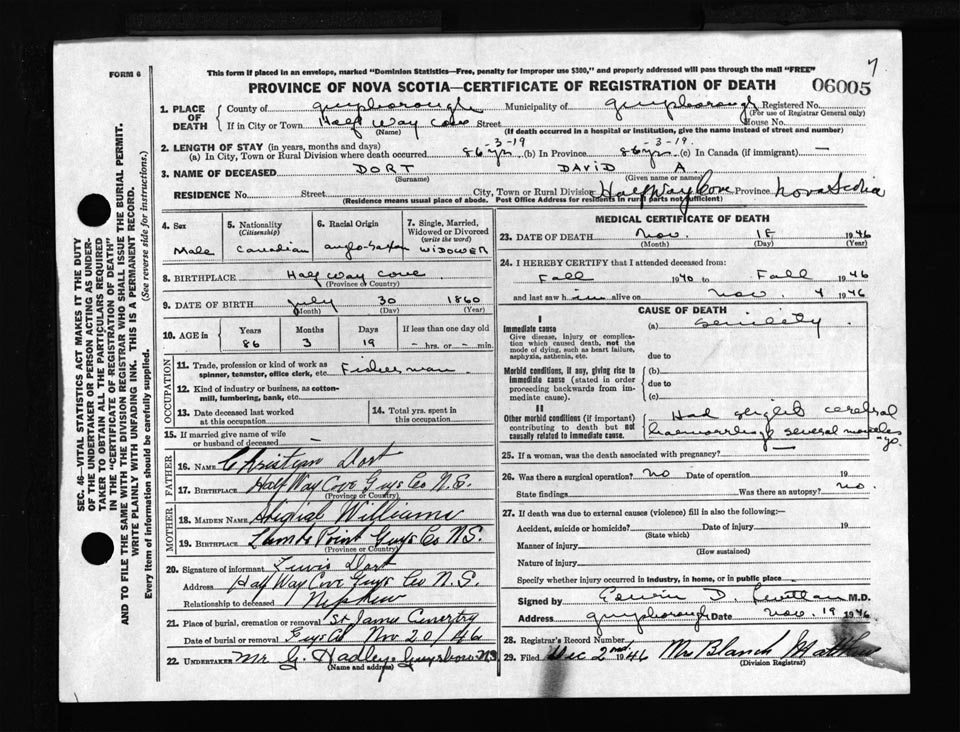 FORM 6
This form if placed in an envelope, marked "Dominion Statistics—Free, penalty for improper use $300," and properly addressed will pass through the mail "FREE"
7
PROVINCE OF NOVA SCOTIA—CERTIFICATE OF REGISTRATION OF DEATH
06005
1. PLACE OF DEATH
County of Guysborough Municipality of Guysborough Registered No.
(For use of Registrar General only)
If in City or Town Half Way Cove Street House No.
(Name) (If death occurred in a hospital or institution, give the name instead of street and number)
2. LENGTH OF STAY (in years, months and days)
(a) In City, Town or Rural Division where death occurred 86 yr -3-19 (b) In Province 86 yr -3-19. (c) In Canada (if immigrant) —
3. NAME OF DECEASED DORT DAVID A.
(Surname) (Given name or names)
RESIDENCE No. Street City, Town or Rural Division Half Way Cove Province Nova Scotia
(Residence means usual place of abode. Post Office Address for residents in rural parts not sufficient)
4. Sex
Male
5. Nationality
(Citizenship)
Canadian
6. Racial Origin
Anglo-Saxon
7. Single, Married, Widowed or Divorced
(write the word)
WIDOWER
8. BIRTHPLACE Half Way Cove
(Province or Country)
9. DATE OF BIRTH July 30 1860
(Month) (Day) (Year)
10. AGE in
Years Months Days If less than one day old
86 3 19 - hrs. or - min.
OCCUPATION
11. Trade, profession or kind of work as spinner, teamster, office clerk, etc. Fisherman
12. Kind of industry or business, as cotton-mill, lumbering, bank, etc.
13. Date deceased last worked at this occupation
14. Total yrs. spent in this occupation
15. If married give name of wife or husband of deceased —
FATHER
16. NAME Christian Dort
17. BIRTHPLACE Half Way Cove Guys Co N.S.
(Province or Country)
MOTHER
18. MAIDEN NAME Williams
19. BIRTHPLACE Point Guys Co N.S.
(Province or Country)
20. Signature of informant Lewis Dort
Address Half Way Cove Guys Co N.S.
Relationship to deceased Nephew
21. Place of burial, cremation or removal St James Cemetry
Date of burial or removal Guys Co Nov 20/46
22. UNDERTAKER Mr G. Hadley Guysboro NS
(Name and address)
MEDICAL CERTIFICATE OF DEATH
23. DATE OF DEATH Nov. 18 1946
(Month) (Day) (Year)
24. I HEREBY CERTIFY that I attended deceased from:
Fall 1940 to Fall 1946
and last saw him alive on Nov. 4 1946
CAUSE OF DEATH
I
Immediate cause
Give disease, injury or complication which caused death, not the mode of dying, such as heart failure, asphyxia, asthenia, etc.
(a) Senility.
due to
Morbid conditions, if any, giving rise to immediate cause (stated in order proceeding backwards from immediate cause).
(b)
due to
(c)
II
Other morbid conditions (if important) contributing to death but not causally related to immediate cause.
Had slight cerebral
haemorrhage several months
ago.
25. If a woman, was the death associated with pregnancy? —
26. Was there a surgical operation? No Date of operation 19
State findings Was there an autopsy? No.
27. If death was due to external causes (violence) fill in also the following:—
Accident, suicide or homicide? Date of injury 19
(State which)
Manner of injury
(How sustained)
Nature of injury
Specify whether injury occurred in industry, in home, or in public place
Signed by Edwin D. M.D.
Address Guysborough Date Nov. 19 1946
28. Registrar's Record Number
29. Filed Dec 2nd 1946 Mrs Blanch Matthews
(Division Registrar)
SEC. 46—VITAL STATISTICS ACT MAKES IT THE DUTY
OF THE UNDERTAKER OR PERSON ACTING AS UNDER-
TAKER TO OBTAIN ALL THE PARTICULARS REQUIRED
IN THE "CERTIFICATE OF REGISTRATION OF DEATH"
AND TO FILE THE SAME WITH THE DIVISION REGISTRAR WHO SHALL ISSUE THE BURIAL PERMIT.
WRITE PLAINLY WITH UNFADING INK. THIS IS A PERMANENT RECORD.
Every item of information should be carefully supplied. (See reverse side for instructions.)